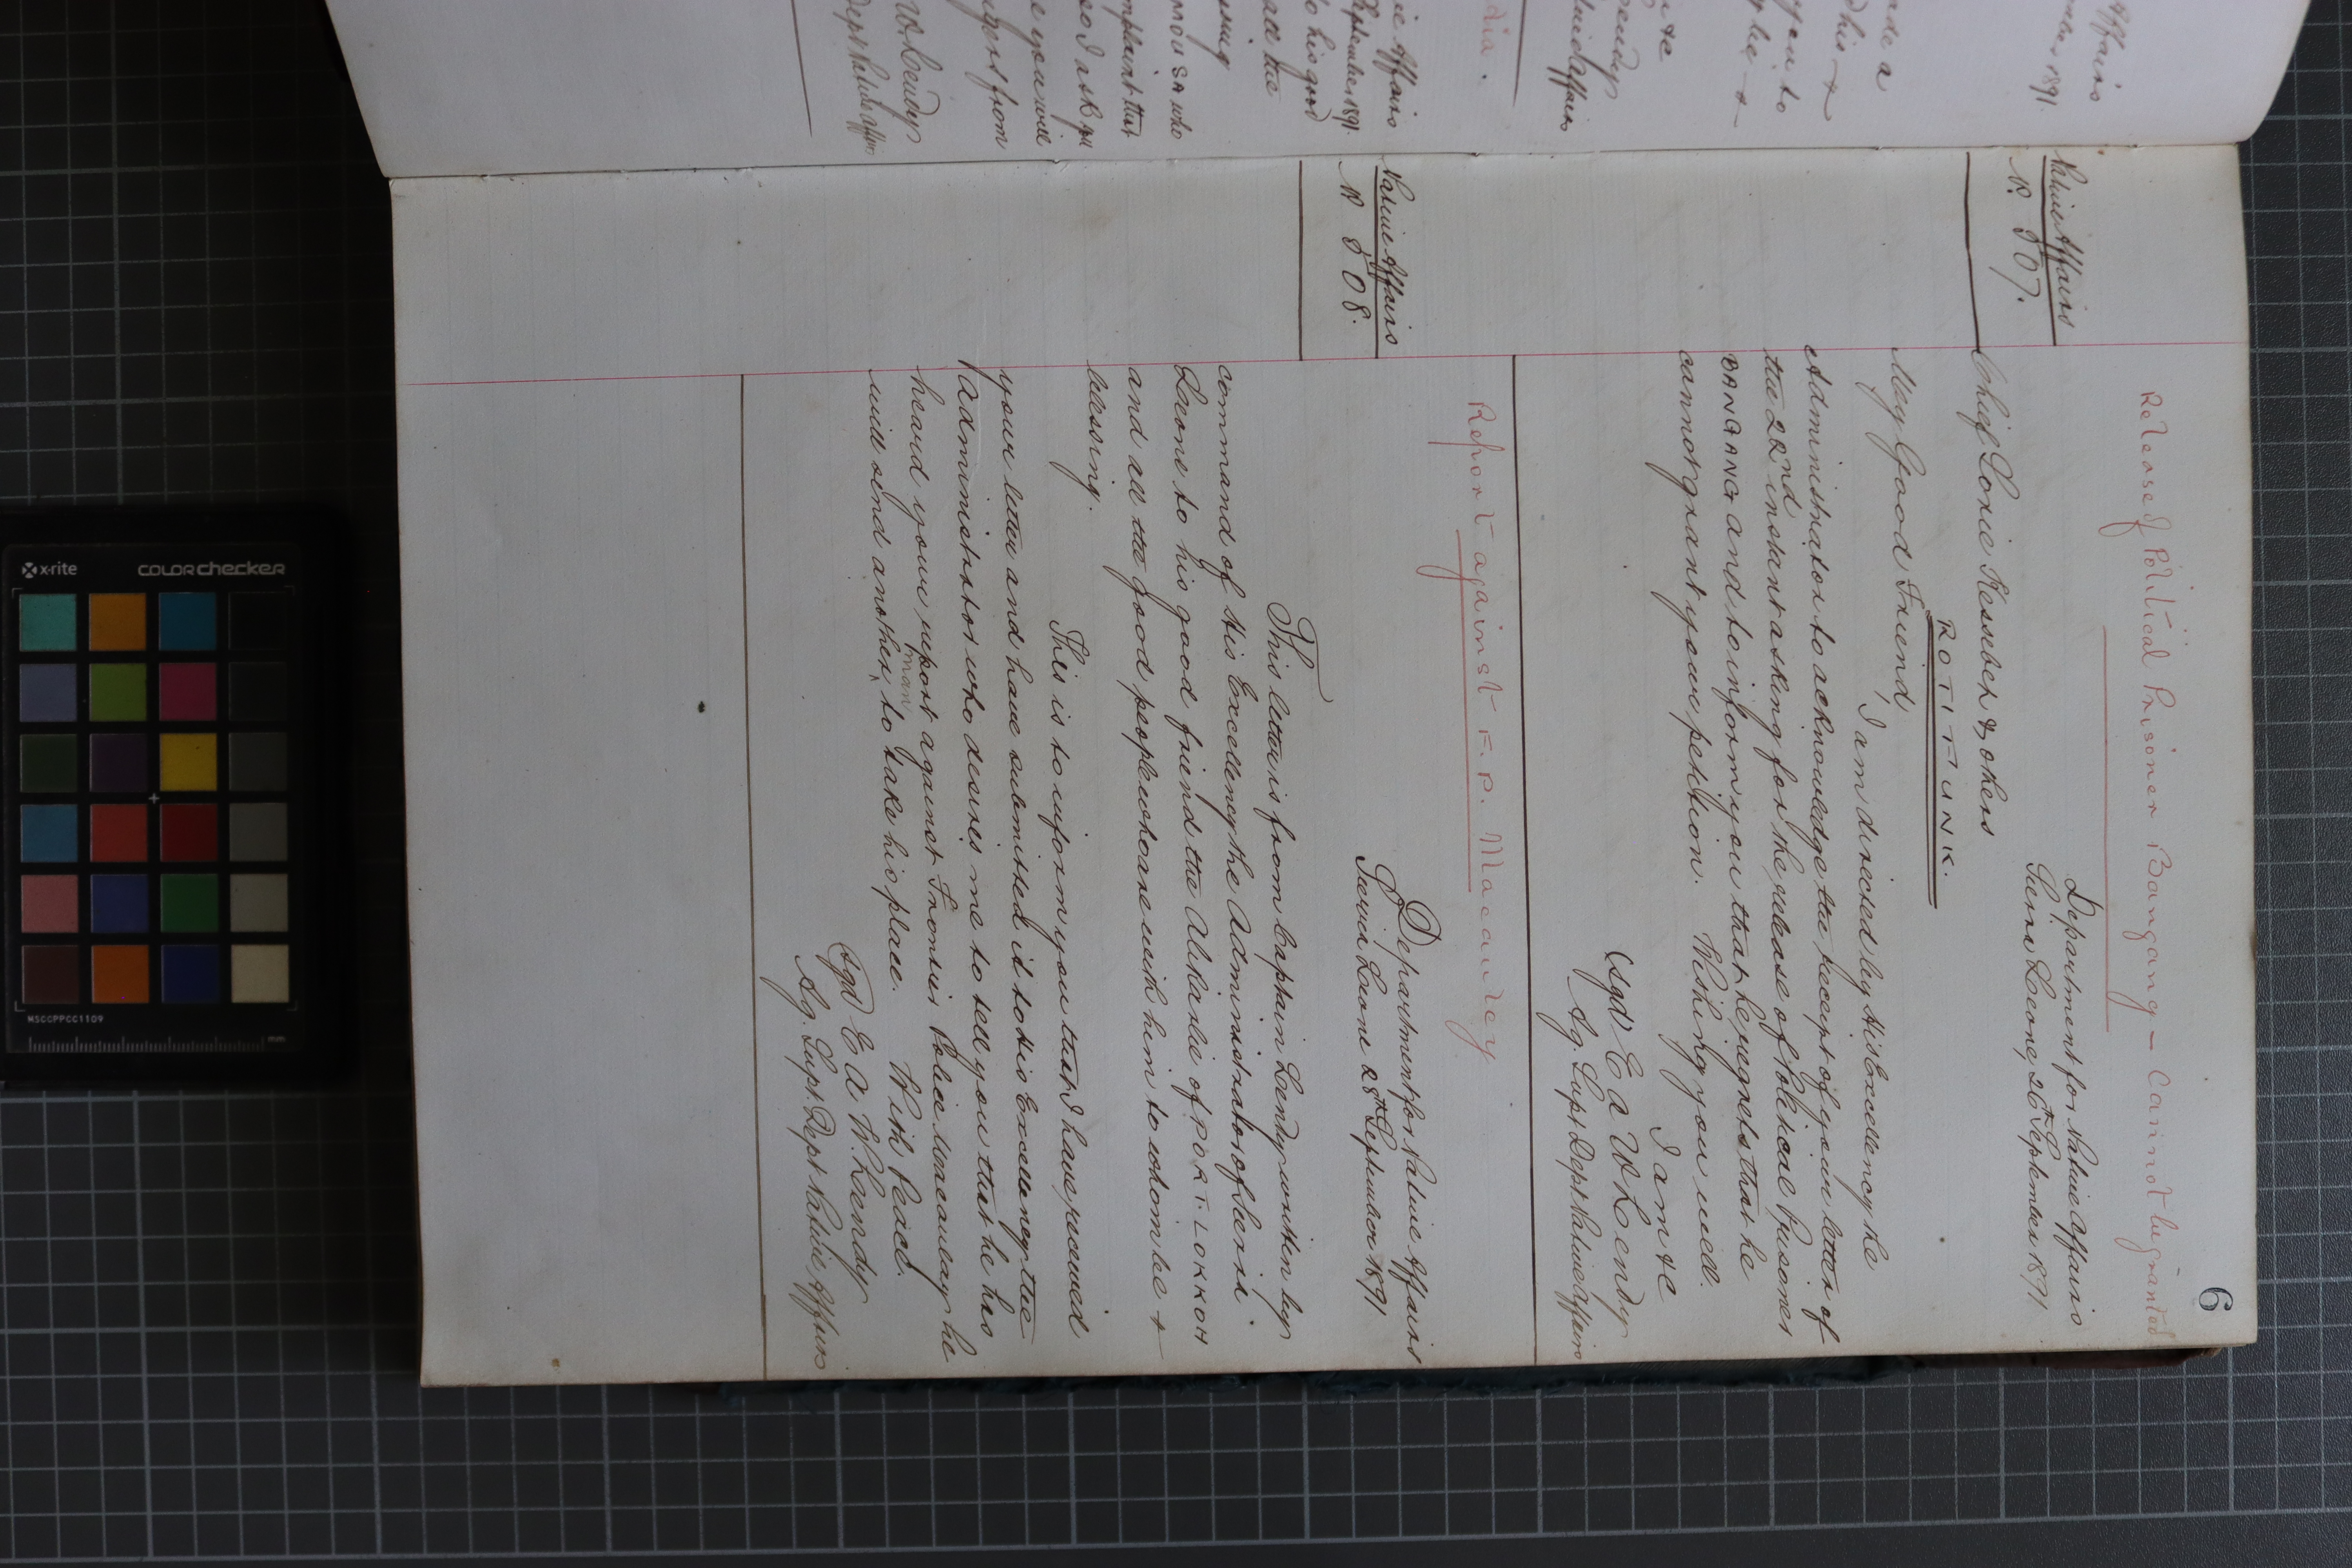 6
Release of Political Prisoner Bangang — Cannot be granted
Native Affairs
No. 507.
Department for Native Affairs
Sierra Leone, 26th September 1891
Chief Sorie Kessebeh & others
ROTIFUNK.
My Good Friend,
I am directed by His Excellency the
Administrator to acknowledge the receipt of your letter of
the 22nd instant asking for the release of Political Prisoner
BANGANG and to inform you that he regrets that he
cannot grant your petition. Wishing you well.
I am &c
(Sgd) E A W Lendy
Ag. Supt Dept Native Affairs
Report against F. P. Macauley
Native Affairs
No 508.
Department for Native Affairs
Sierra Leone 28th September 1891
This letter is from Captain Lendy written by
command of His Excellency the Administrator of Sierra
Leone to his good friend the Alikarlie of PORT. LOKKOH
and all the good people who are with him to whom be +
blessing.
This is to inform you that I have perused
your letter and have submitted it to His Excellency the
Administrator who desires me to tell you that he has
heard your report against Frontier Police Macaulay he
will send another man to take his place. With Peace.
Sgd E A W. Lendy
Ag. Supt. Dept Native Affairs
Affairs
1891
made a
this +
be +
&c
Lendy
Native Affairs
Native Affairs
September 1891
to his good
all the
MOUSA who
complaint that
so I ask you
you will
from
W Lendy
Dept Native Affairs
x-rite
colorchecker
MSCCPPCC1109
mm